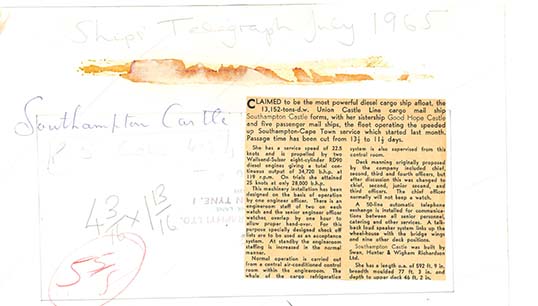 Ships' Telegraph July 1965
Southampton Castle
4 3/16 x 1 13/16
CLAIMED to be the most powerful diesel cargo ship afloat, the
13,152-tons-d.w. Union Castle Line cargo mail ship
Southampton Castle forms, with her sistership Good Hope Castle
and five passenger mail ships, the fleet operating the speeded
up Southampton-Cape Town service which started last month.
Passage time has been cut from 13½ to 11½ days.
She has a service speed of 22.5
knots and is propelled by two
Wallsend-Sulzer eight-cylinder RD90
diesel engines giving a total con-
tinuous output of 34,720 b.h.p. at
119 r.p.m. On trials she attained
25 knots at only 28,000 b.h.p.
This machinery installation has been
designed on the basis of operation
by one engineer officer. There is an
engineroom staff of two on each
watch and the senior engineer officer
watches overlap by one hour to
allow proper hand-over. For this
purpose specially designed check off
lists are to be used as an acceptance
system. At standby the engineroom
staffing is increased in the normal
manner.
Normal operation is carried out
from a central air-conditioned control
room within the engineroom. The
whole of the cargo refrigeration
system is also supervised from this
control room.
Deck manning originally proposed
by the company included chief,
second, third and fourth officers, but
after discussion this was changed to
chief, second, junior second, and
third officers. The chief officer
normally will not keep a watch.
A 50-line automatic telephone
exchange is installed for communica-
tions between all senior personnel,
catering and other services. A talk-
back loud speaker system links up the
wheelhouse with the bridge wings
and nine other deck positions.
Southampton Castle was built by
Swan, Hunter & Wigham Richardson
Ltd.
She has a length o.a. of 592 ft. 9 in.
breadth moulded 77 ft. 3 in. and
depth to upper deck 46 ft. 2 in.